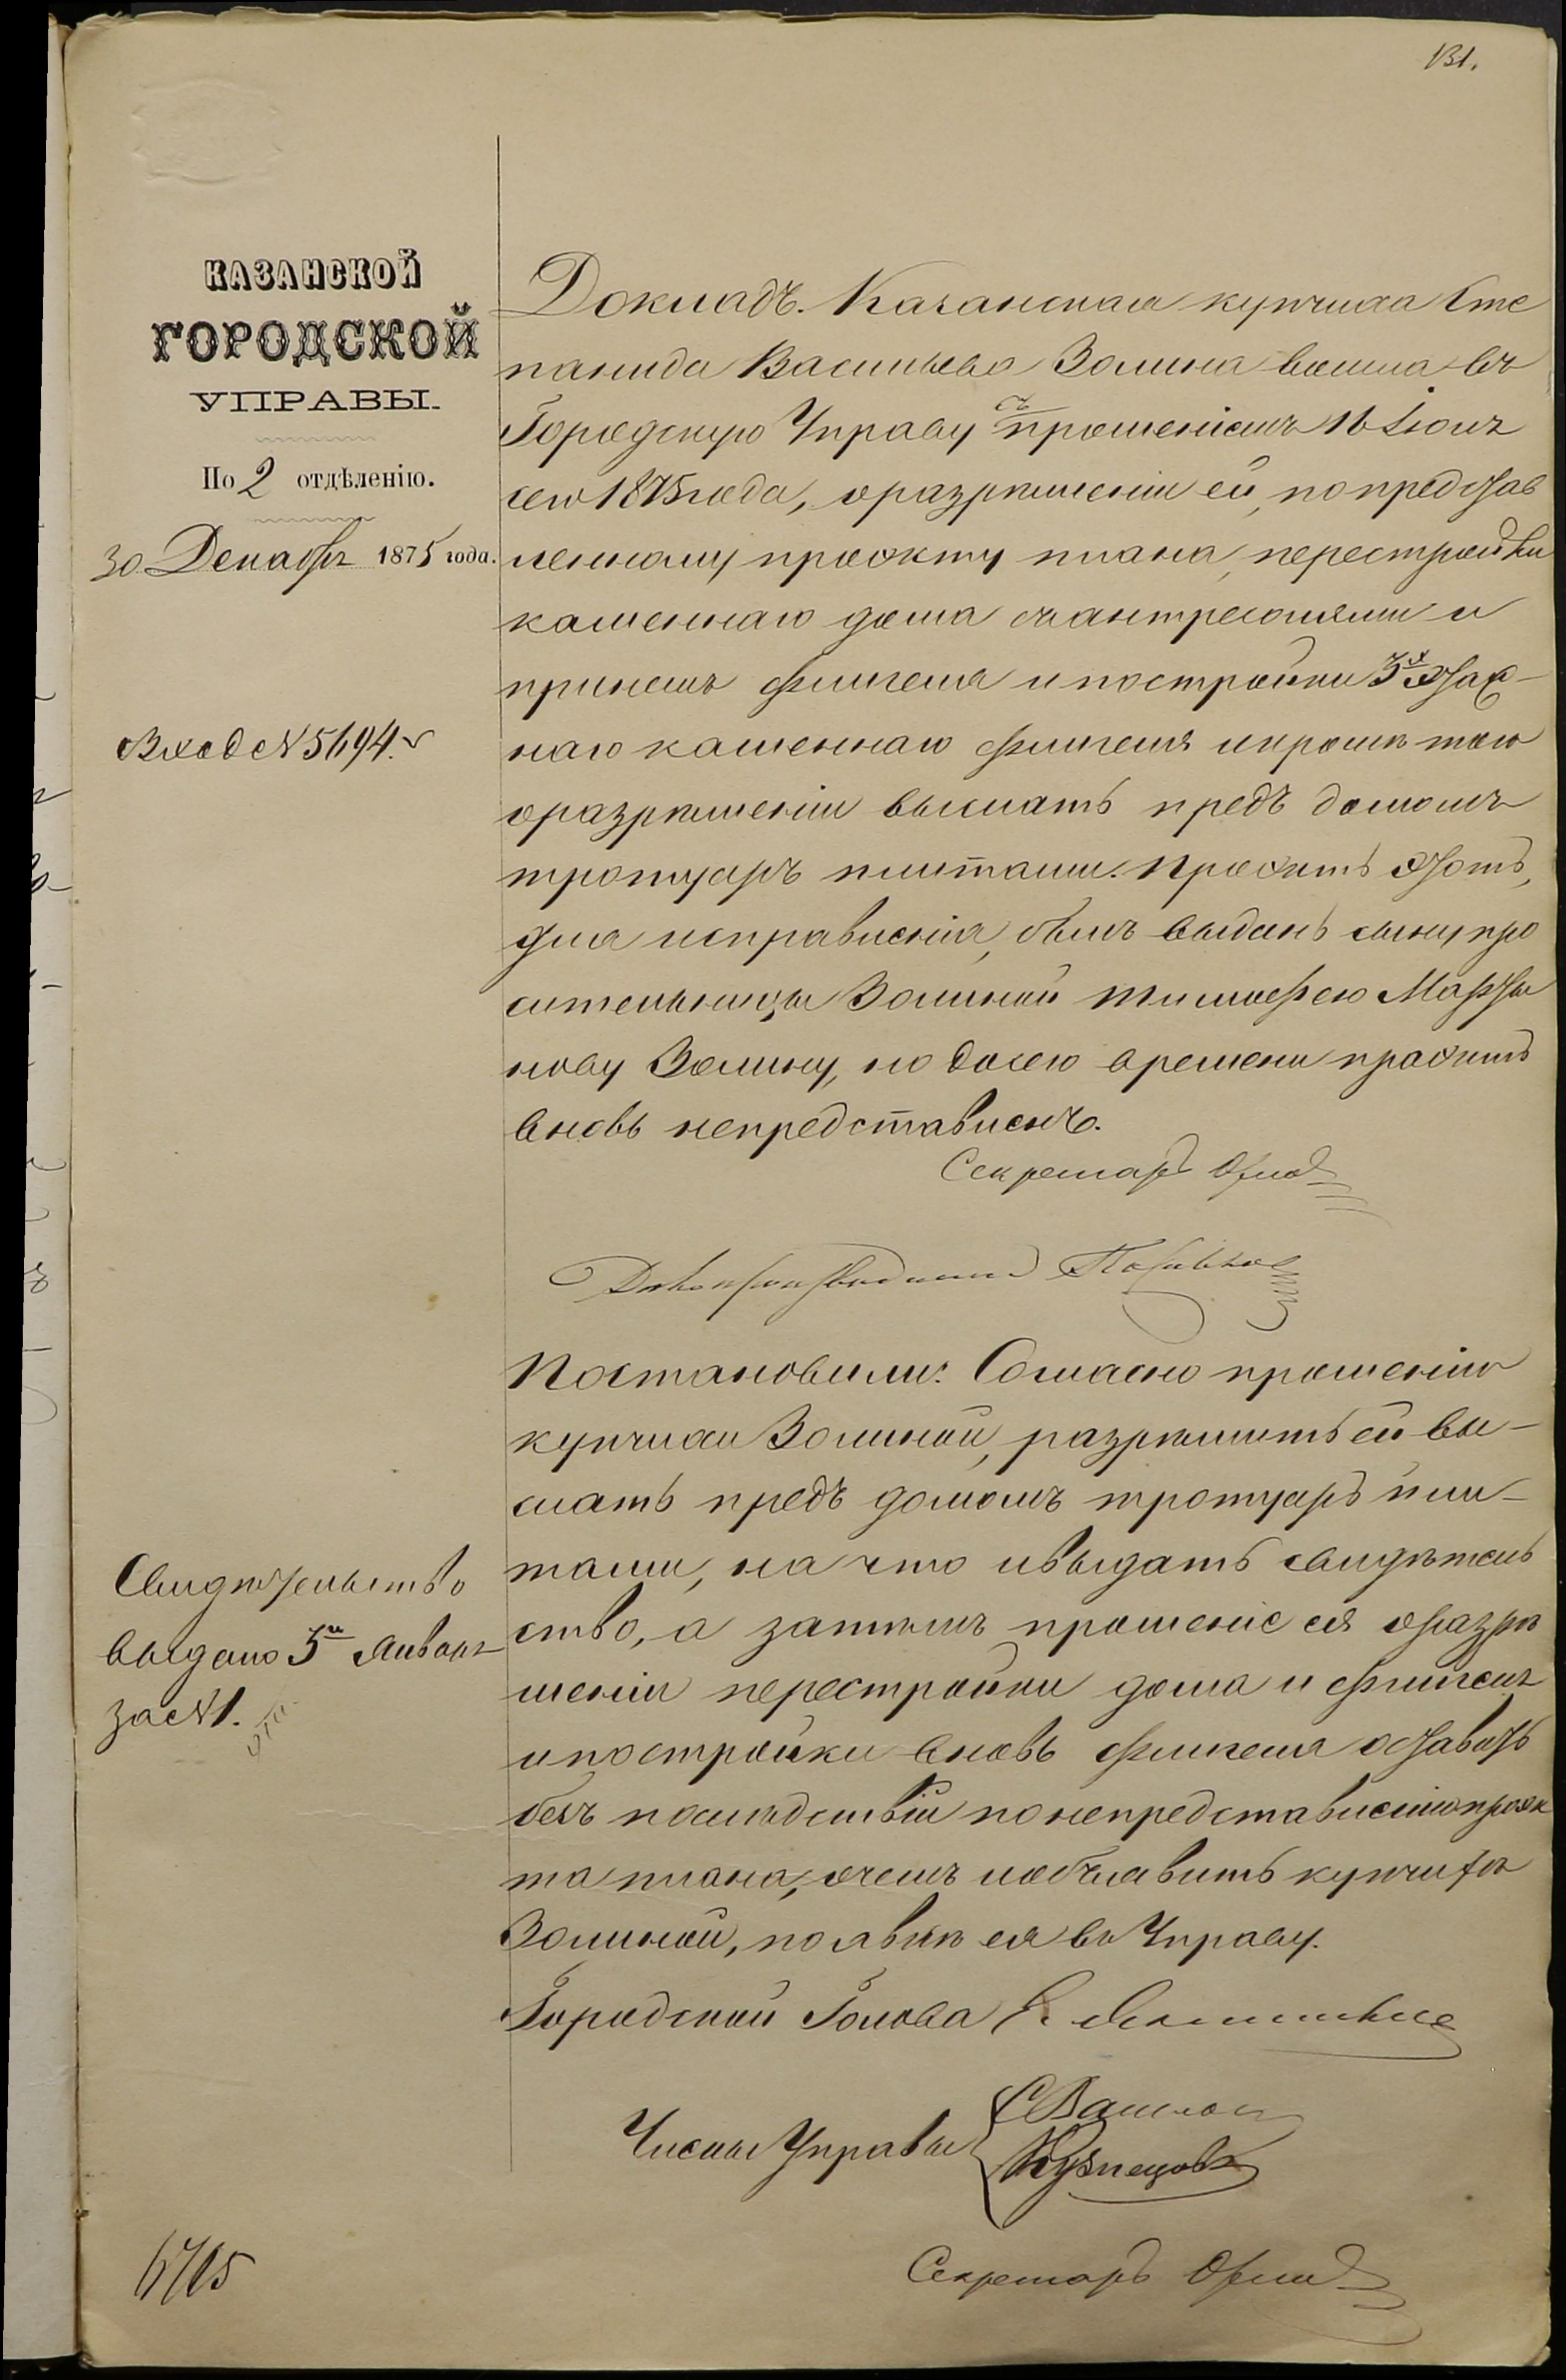 131.
КАЗАНСКОЙ
ГОРОДСКОЙ
УПРАВЫ.
По 2 отдѣленію.
30 Декабря 1875 года.
Вход №5694.
Докладъ. Казанская купчиха Сте
панида Васильева Золина вошла въ
Городскую Управу съ прошеніемъ 16 Іюля
сего 1875 года, о разрѣшеніи ей, по представ
ленному проэкту плана, перестройки
каменнаго дома съ антресолями и
при немъ флигеля и постройки 3х этаж-
наго каменнаго флигеля и кромѣ того
о разрѣшеніи выслать предъ домомъ
тротуаръ плитами. Проэктъ этотъ,
для исправленія, былъ выданъ сыну про
сительницы Золиной Тимофею Марты
нову Золину, но до сего времени проэктъ
вновь непредставленъ.
Секретарь
Дѣлопроизводитель
Постановили: Согласно прошенію
купчихи Золиной, разрѣшить ей вы-
слать предъ домомъ тротуаръ пли-
тами, на что и выдать свидѣтель
ство, а затѣмъ прошеніе ея о разрѣ
шеніи перестройки дома и флигеля
и постройки вновь флигеля оставить
безъ послѣдствій по непредставленію проэк
та плана, о чемъ и объявить купчихѣ
Золиной, по явкѣ ея въ Управу.
Свидѣтельство
выдано 5го Января
за №1.
Городской Голова
Члены Управы
Кузнецовъ
Секретарь